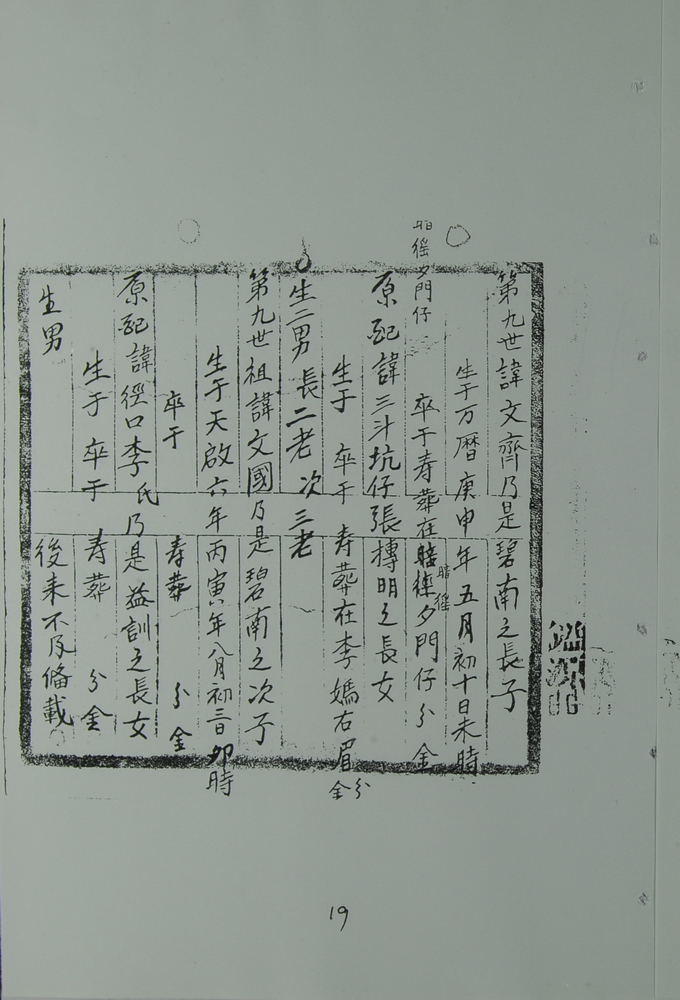 第九世諱文齊乃是碧南之長子
生于万曆庚申年五月初十日未時
卒于寿葬在 夕門仔分金
夕門仔
原配諱三斗坑仔張摶明之長女
生于 卒于 寿葬在李媽右眉分金
生二男長二老次三老
第九世祖諱文國乃是碧南之次子
生于天啟六年丙寅年八月初三日卯時
卒于 寿葬 分金
原配諱徑口李氏乃是益訓之長女
生于 卒于 寿葬 分金
生男 後来不及俻載
19